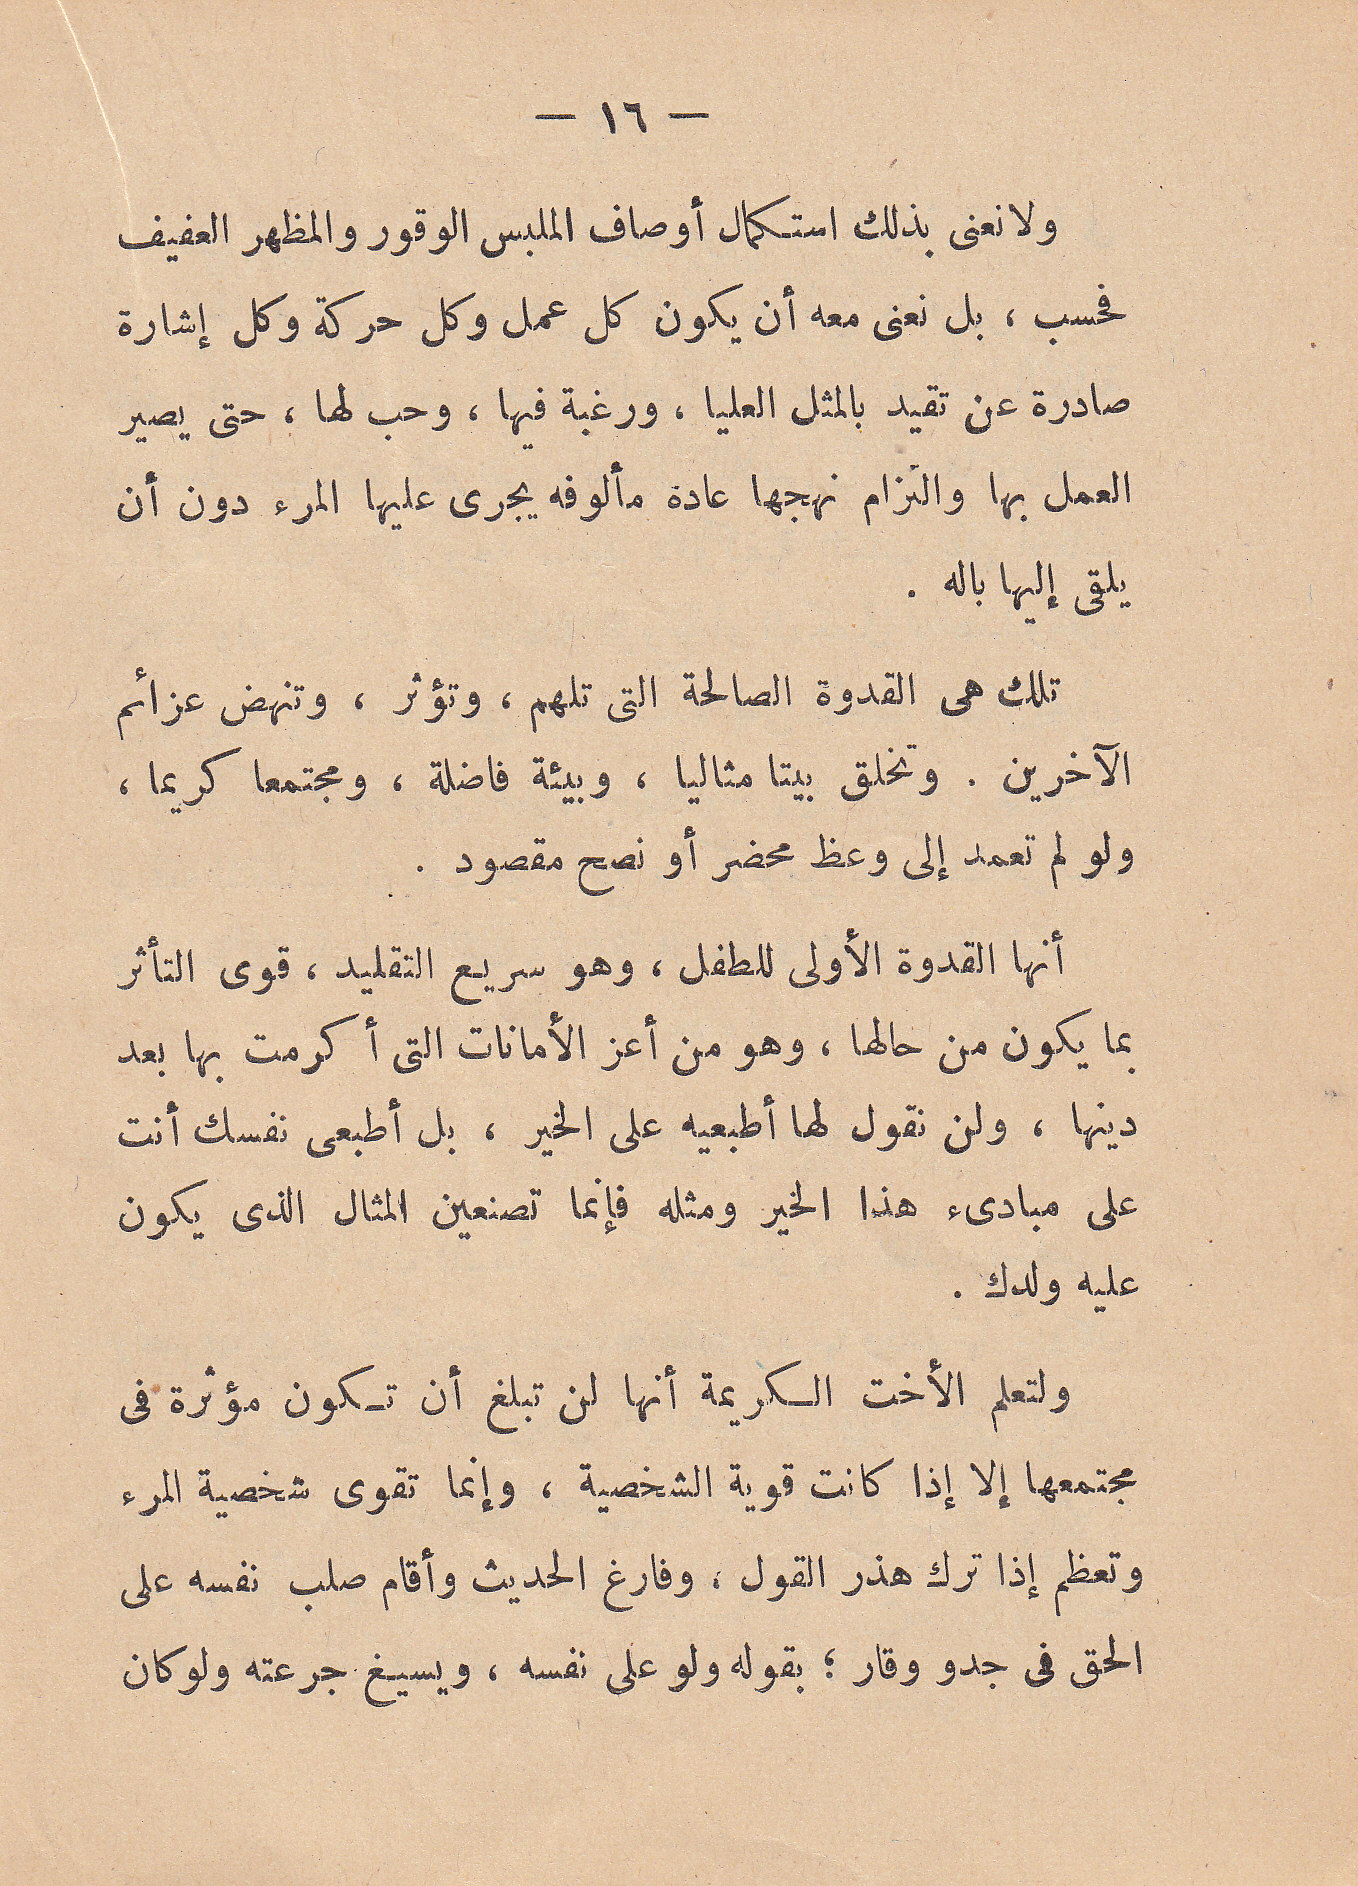 — ١٦ —
ولا نعنى بذلك استكمال أوصاف الملبس الوقور والمظهر العفيف
فحسب ، بل نعنى معه أن يكون كل عمل وكل حركة وكل إشارة
صادرة عن تقيد بالمثل العليا ، ورغبة فيها ، وحب لها ، حتى يصير
العمل بها والتزام نهجها عادة مألوفه يجرى عليها المرء دون أن
يلقى إليها باله .
تلك هى القدوة الصالحة التى تلهم ، وتؤثر ، وتنهض عزائم
الآخرين . وتخلق بيتا مثاليا ، وبيئة فاضلة ، ومجتمعا كريما ،
ولو لم تعمد إلى وعظ محضر أو نصح مقصود .
أنها القدوة الأولى للطفل ، وهو سريع التقليد ، قوى التأثر
بما يكون من حالها ، وهو من أعز الأمانات التى أكرمت بها بعد
دينها ، ولن نقول لها أطبعيه على الخير ، بل أطبعى نفسك أنت
على مبادىء هذا الخير ومثله فإنما تصنعين المثال الذى يكون
عليه ولدك .
ولتعلم الأخت الكريمة أنها لن تبلغ أن تكون مؤثرة فى
مجتمعها إلا إذا كانت قوية الشخصية ، وإنما تقوى شخصية المرء
وتعظم إذا ترك هذر القول ، وفارغ الحديث وأقام صلب نفسه على
الحق فى جدو وقار ؛ بقوله ولو على نفسه ، ويسيغ جرعته ولو كان